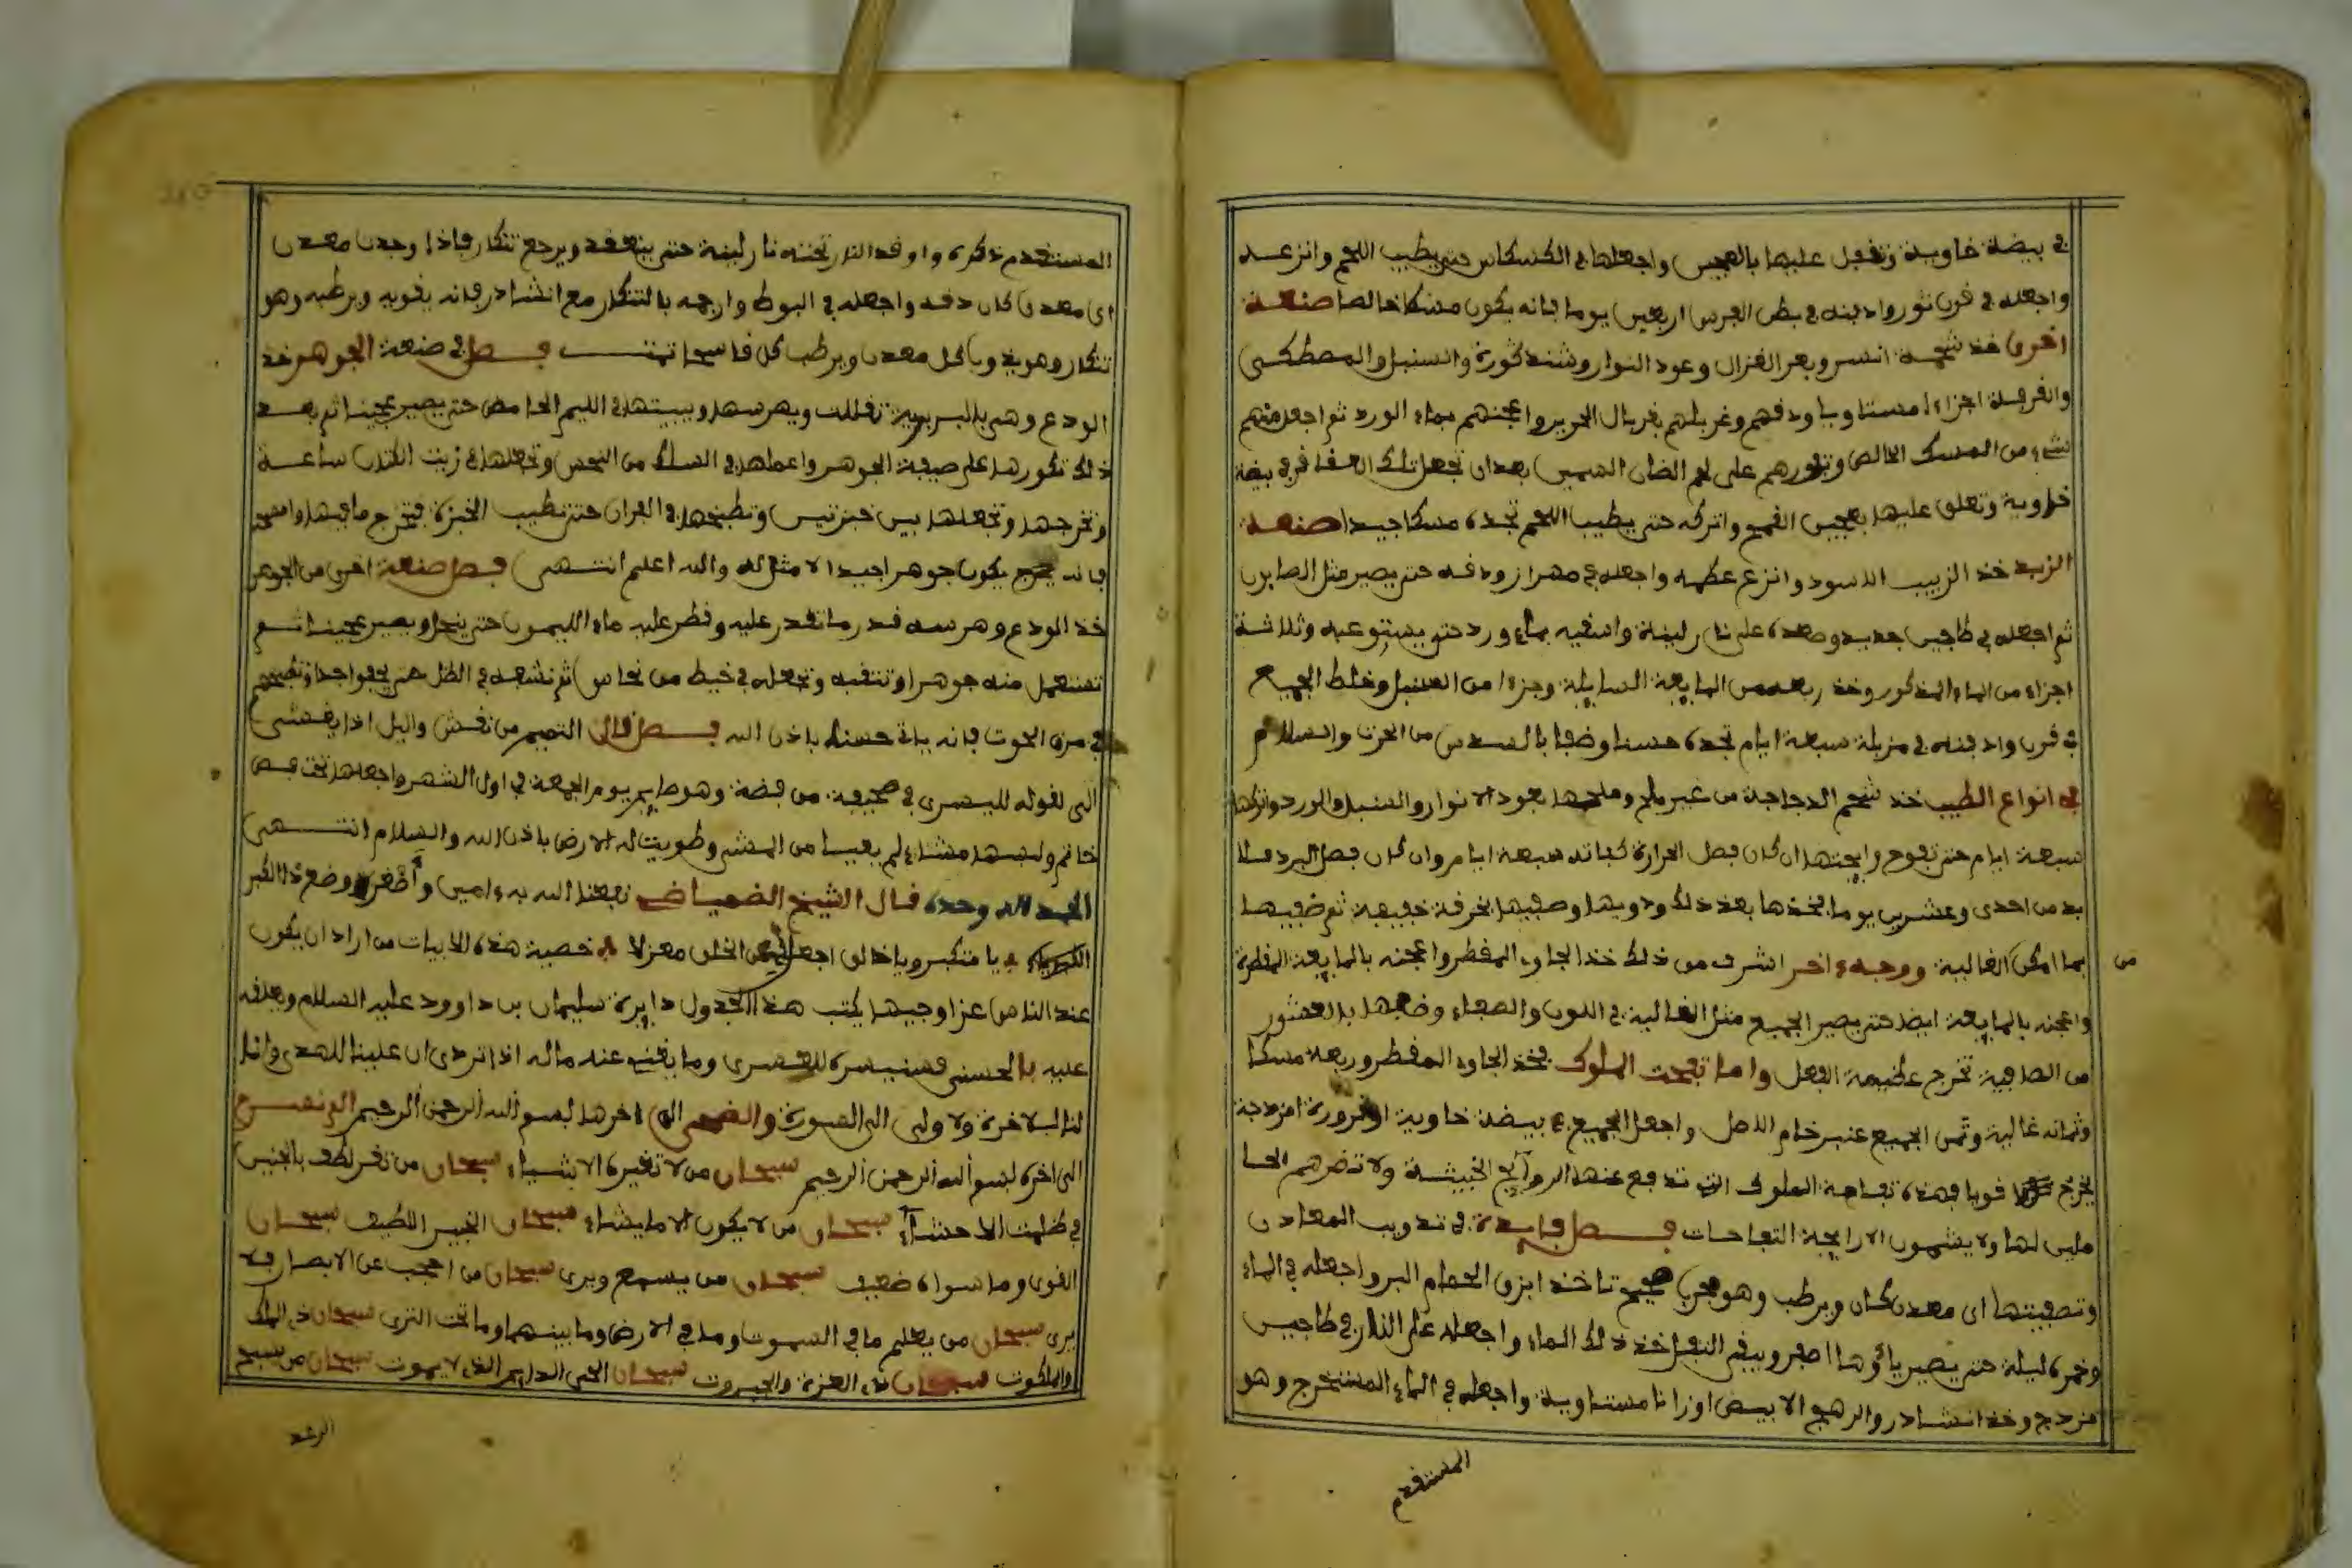 في بيضة خاوية وتفعل عليها بالعجين واجعلها في الكسكاس حتى يطيب اللحم وانزعه
واجعله في قرن ثور وادفنه في بطن الفرس اربعين يوما فانه يكون مسكا خالصا صنعة
اخرى خذ شحمة انسر وبعر الغزال وعود النوار وشندكورة والسنبل والمصطكى
والقرفة اجزاء مستاويا ودقهم وغربلهم بغربال الحرير واعجنهم بماء الورد ثم اجعل منهم
شيء من المسك الخالص على لحم الضان السمين بعد ان تجعل تلك العقاقر في بيضة
خاوية وتعلق عليها بعجين القمح واتركه حتى يطيب اللحم تجده مسكا جيدا صنعة
الزبد خذ الزبيب الاسود وانزع عظمه واجعله في مهراز ودقه حتى يصير مثل الصابون
ثم اجعله في طاجين جديد وصعده على نار لينة واسقيه بماء ورد حتى يستوعبه وثلاثة
اجزاء من الماء المذكور وخذ ربعه من المايعة السايلة وجزءا من السنبل وخلط الجميع
في قرن وادفنه في مزبلة سبعة ايام تجده حسنا وضفها بالسدس من الحزت والسلام
في انواع الطيب خذ شحم الدجاجة من غير ملح وملحها بعود الانوار والسنبل والورد واتركها
سبعة ايام حتى تفوح وان كان فصل الحرارة كفاته سبعة ايام وان كان فصل البرد فلا
بد من احدى وعشرين يوما فخذها بعد ذلك ودوبها وصفيها بخرقة خفيفة ثم ضفيها
بما امكن الغالية ووجهء اخر اشرف من ذلك خذ الجاوي المقطر واعجنه بالمايعة المقطرة
من
واعجنه بالمايعة ايضا حتى يصير الجميع مثل الغالية في اللون والصفاء وضفها بالعشور
من الصافية تخرج عظيمة الفعل واما تفحت الملوك فخذ الجاوي المقطر وربعه مسكا
وثمانه غالية وثمن الجميع عنبر خام الاصل واجعل الجميع في بيضة خاوية او قرورة امزدجة
يخرج قويا فهذه تفاحة الملوك التي تدفع عنها الروايح الخبيثة ولا تضرهم الحا
ملين لها ولا يشمون الا رايحة التفاحات فصل فايدة في تدويب المعادن
وتصفيتها اي معدن كان ويرطب وهو مجرب صحيح تاخذ ابزق الحمام البر واجعله في الماء
وخمره ليلة حتى يصير ماؤها اصفر ويبقى الثفل خذ ذلك الماء واجعله على النار في طاجين
مزدج وخذ انشادر والرهج الابيض اوزانا مستاوية واجعله في الماء المستخرج وهو
المستقدم
المستقدم ذكره واوقد النار تحته نار لينة حتى ينعقد ويرجع تنكار فاذا وجدت معدن
اي معدن كان دقه واجعله في البوط وارجمه بالتنكار مع انشادر فانه يقويه ويرطبه وهو
تنكار وهو يذوب كل معدن ويرطب كل قاسحا تمت فصل في صنعة الجوهر خذ
الودع وهي بالبربرية تفللت ويهرسها ويبيتها في الليم الحامض حتى يصير عجينا ثم بعد
ذلك تكورها على صيفة الجوهر واعملها في السلك من النحس وتجعلها في زيت الكتان ساعة
وتخرجها وتجعلها بين خبزتين وتطبخها في الفران حتى تطيب الخبزة فتخرج ما فيها وامسحه
فانه يخرج يكون جوهرا جيدا لا مثل له والله اعلم انتهى فصل صنعة اخرى من الجوهر
خذ الودع وهرسه قدر ما تقدر عليه وقطر عليه ماء الليمون حتى ينحل ويصير عجينا ثم
تستعمل منه جوهرا وتثقبه وتجعله في خيط من نحاس ثم نشفه في الظل حتى يجفوا جدا وتطبخهم
في مرق الحوت فانه ياتي حسنا باذن الله فصل قال التميم من نقش واليل اذا يغشى
الى قوله لليسرى في صحيفة من فضة وهو صايم يوم الجمعة في اول الشهر واجعلها تحت فص
خاتم ولبسها مشاء لم يعيا من المشي وطويت له الارض باذن الله والسلام انتهى
الحمد لله وحده قال الشيخ الضمياضي نفعنا الله به ءامين
يا متكبر ويا خالق اجعل الخلق معزلا خصية هذه الابيات من اراد ان يكون
عند الناس عزا وجيها يكتب هذا الجدول دايرة سليمان بن داوود عليه السلام ويعلقه
عليه بالحسنى فسنيسره للعسرى وما يغني عنه ماله اذا تردى ان علينا للهدى وان
لنا للاخرة والاولى الى السورة والضحى الى ءاخرها بسم الله الرحمن الرحيم الم نشرح
الى اخره بسم الله الرحمن الرحيم سبحان من لا تغيره الاشياء سبحان من تقر لطف بالجنين
في ظلمت الاحشاء سبحان من لا يكون الا ما يشاء سبحان الخبير اللطيف سبحان
القوى وما سواه ضعيف سبحان من يسمع ويرى سبحان من احجب عن الابصار فلا
يرى سبحان من يعلم ما في السموت وما في الارض وما بينهما وما تحت الثرى سبحان ذي الملك
والملكوت سبحان ذي العزة والجبروت سبحان الحي الدايم الذي لا يموت سبحان من سبح
الرعد